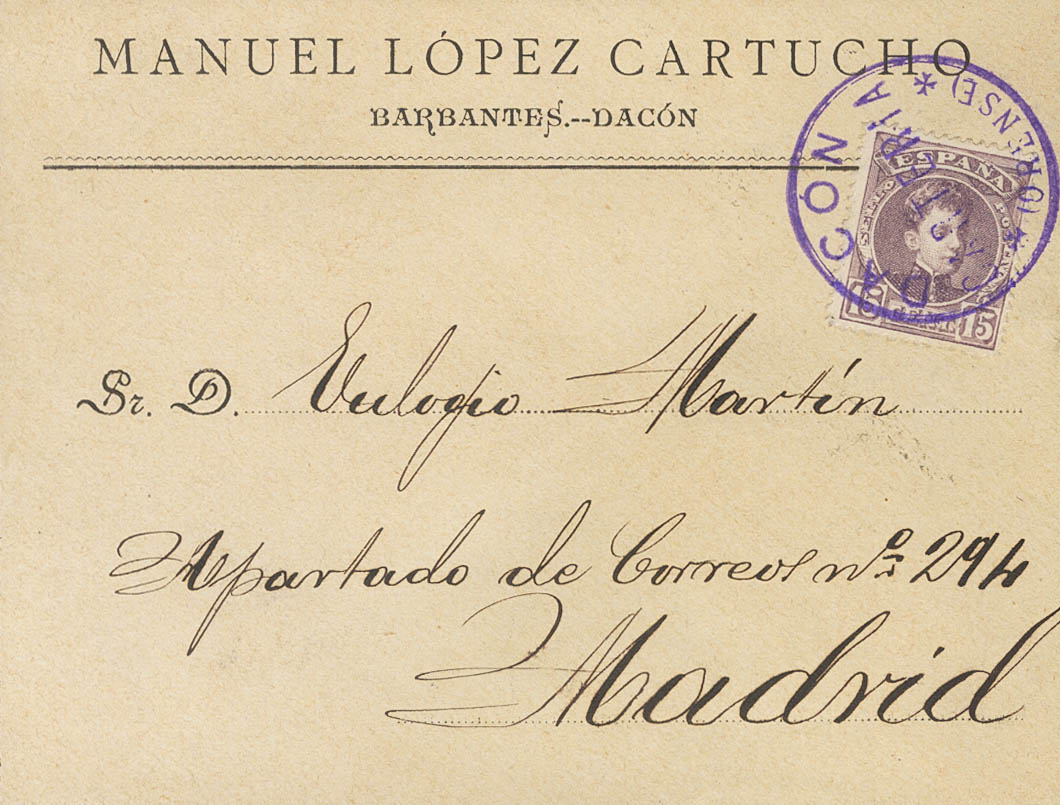 MANUEL LÓPEZ CARTUCHO
BARBANTES.--DACÓN
DACÓN * (ORENSE) *
CARTERÍA
ESPAÑA
SELLO POSTAL
15 15
Sr. D. Eulogio Martín
Apartado de Correos nº 294
Madrid